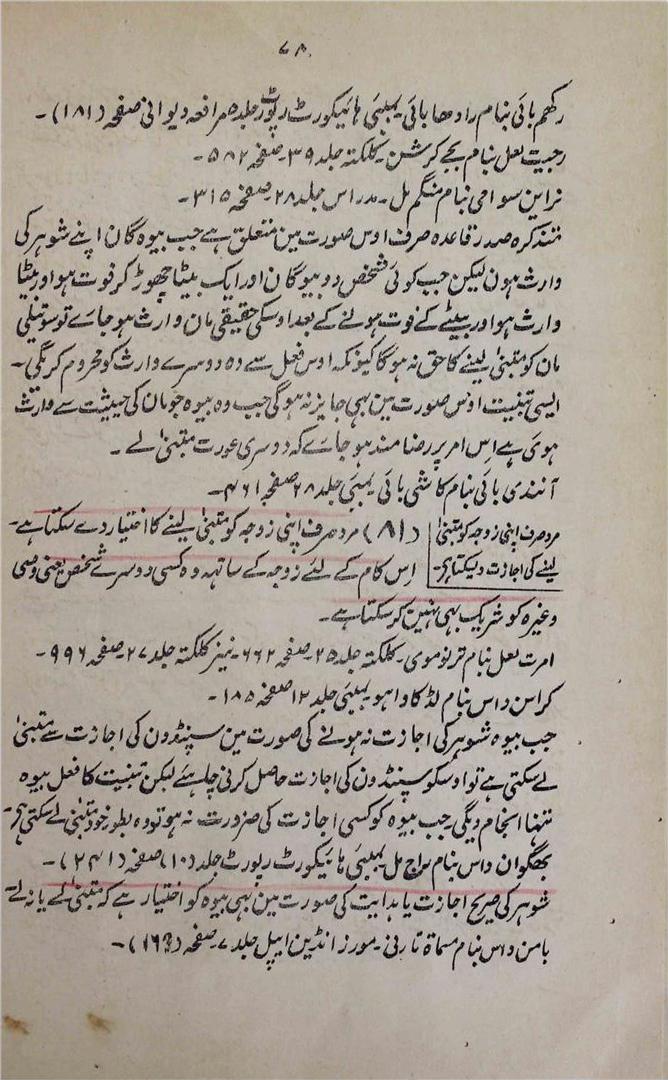 ۷۸
رکھم بائی بنام رادھا بائی۔ بمبئی ہائیکورٹ رپورٹ جلد ۵ مرافعہ دیوانی صفحہ (۱۸۱)۔
رجیت لعل بنام بجے کرشن۔ کلکتہ جلد ۳۹۔ صفحہ ۵۸۲۔
نراین سوامی بنام منگم مل۔ مدراس جلد ۲۸۔ صفحہ ۳۱۵۔
متذکرہ صدر قاعدہ صرف اوس صورت مین متعلق ہے جب بیوہ گان اپنے شوہر کی
وارث ہون لیکن جب کوئی شخص دو بیوگان اور ایک بیٹا چھوڑ کر فوت ہو اور بیٹا
وارث ہو اور بیٹے کے فوت ہونے کے بعد اوسکی حقیقی مان وارث ہو جاے تو سوتیلی
مان کو متبنیٰ لینے کا حق نہ ہوگا کیونکہ اوس فعل سے وہ دوسرے وارث کو محروم کریگی۔
ایسی تبنیت اوس صورت مین بہی جایز نہ ہوگی جب وہ بیوہ جو مان کی حیثیت سے وارث
ہوی ہے اس امر پر رضامند ہو جاے کہ دوسری عورت متبنیٰ لے۔
آنندی بائی بنام کاشی بائی بمبئی جلد ۲۸ صفحہ ۴۶۱۔
مرد صرف اپنی زوجہ کو متبنیٰ
لینے کی اجازت دیسکتا ہے۔
(۸۱) مرد صرف اپنی زوجہ کو متبنیٰ لینے کا اختیار دے سکتا ہے۔
اس کام کے لئے زوجہ کے ساتھہ وہ کسی دوسرے شخص یعنی وصی
وغیرہ کو شریک بہی نہین کر سکتا ہے۔
امرت لعل بنام ترنوموی۔ کلکتہ جلد ۲۵۔ صفحہ ۶۶۲۔ نیز کلکتہ جلد ۲۷۔ صفحہ ۹۹۶۔
کراسن داس بنام لڈکا واہو بمبئی جلد ۱۲ صفحہ ۱۸۵۔
جب بیوہ شوہر کی اجازت نہ ہونے کی صورت مین سپنڈون کی اجازت سے متبنیٰ
لے سکتی ہے تو اوسکو سپنڈون کی اجازت حاصل کرنی چاہئے لیکن تبنیت کا فعل بیوہ
تنہا انجام دیگی۔ جب بیوہ کو کسی اجازت کی ضرورت نہ ہو تو وہ بطور خود متبنیٰ لے سکتی ہے۔
بھگوان داس بنام راج مل بمبئی ہائیکورٹ رپورٹ جلد (۱۰) صفحہ (۲۴۱)۔
شوہر کی صریح اجازت یا ہدایت کی صورت مین بہی بیوہ کو اختیار ہے کہ متبنیٰ لے یا نہ لے۔
بامن داس بنام مسماۃ تارنی۔ مورز انڈین اپیل جلد ۷۔ صفحہ (۱۶۹)۔